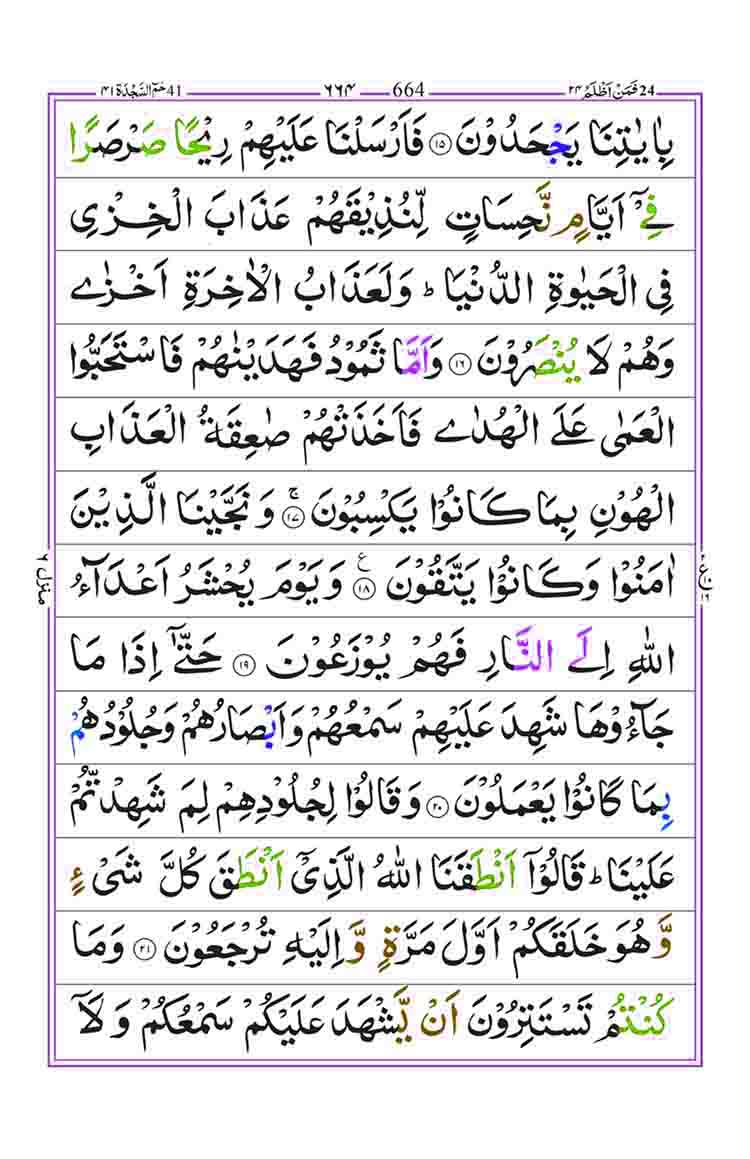 41 حٰمٓ السَّجْدَة ۴۱
۶۶۴ 664
24 فَمَنْ اَظْلَمُ ۲۴
بِاٰيٰتِنَا يَجْحَدُوْنَ ۝۱۵ فَاَرْسَلْنَا عَلَيْهِمْ رِيْحًا صَرْصَرًا
فِيْٓ اَيَّامٍ نَّحِسَاتٍ لِّنُذِيْقَهُمْ عَذَابَ الْخِزْيِ
فِي الْحَيٰوةِ الدُّنْيَا ؕ وَلَعَذَابُ الْاٰخِرَةِ اَخْزٰى
وَهُمْ لَا يُنْصَرُوْنَ ۝۱۶ وَاَمَّا ثَمُوْدُ فَهَدَيْنٰهُمْ فَاسْتَحَبُّوا
الْعَمٰى عَلَى الْهُدٰى فَاَخَذَتْهُمْ صٰعِقَةُ الْعَذَابِ
الْهُوْنِ بِمَا كَانُوْا يَكْسِبُوْنَ ۝۱۷ۚ وَنَجَّيْنَا الَّذِيْنَ
اٰمَنُوْا وَكَانُوْا يَتَّقُوْنَ ۝۱۸ ع وَيَوْمَ يُحْشَرُ اَعْدَآءُ
اللّٰهِ اِلَى النَّارِ فَهُمْ يُوْزَعُوْنَ ۝۱۹ حَتّٰٓى اِذَا مَا
جَآءُوْهَا شَهِدَ عَلَيْهِمْ سَمْعُهُمْ وَاَبْصَارُهُمْ وَجُلُوْدُهُمْ
بِمَا كَانُوْا يَعْمَلُوْنَ ۝۲۰ وَقَالُوْا لِجُلُوْدِهِمْ لِمَ شَهِدْتُّمْ
عَلَيْنَا ؕ قَالُوْٓا اَنْطَقَنَا اللّٰهُ الَّذِيْٓ اَنْطَقَ كُلَّ شَيْءٍ
وَّهُوَ خَلَقَكُمْ اَوَّلَ مَرَّةٍ وَّاِلَيْهِ تُرْجَعُوْنَ ۝۲۱ وَمَا
كُنْتُمْ تَسْتَتِرُوْنَ اَنْ يَّشْهَدَ عَلَيْكُمْ سَمْعُكُمْ وَلَآ
منزل ۶